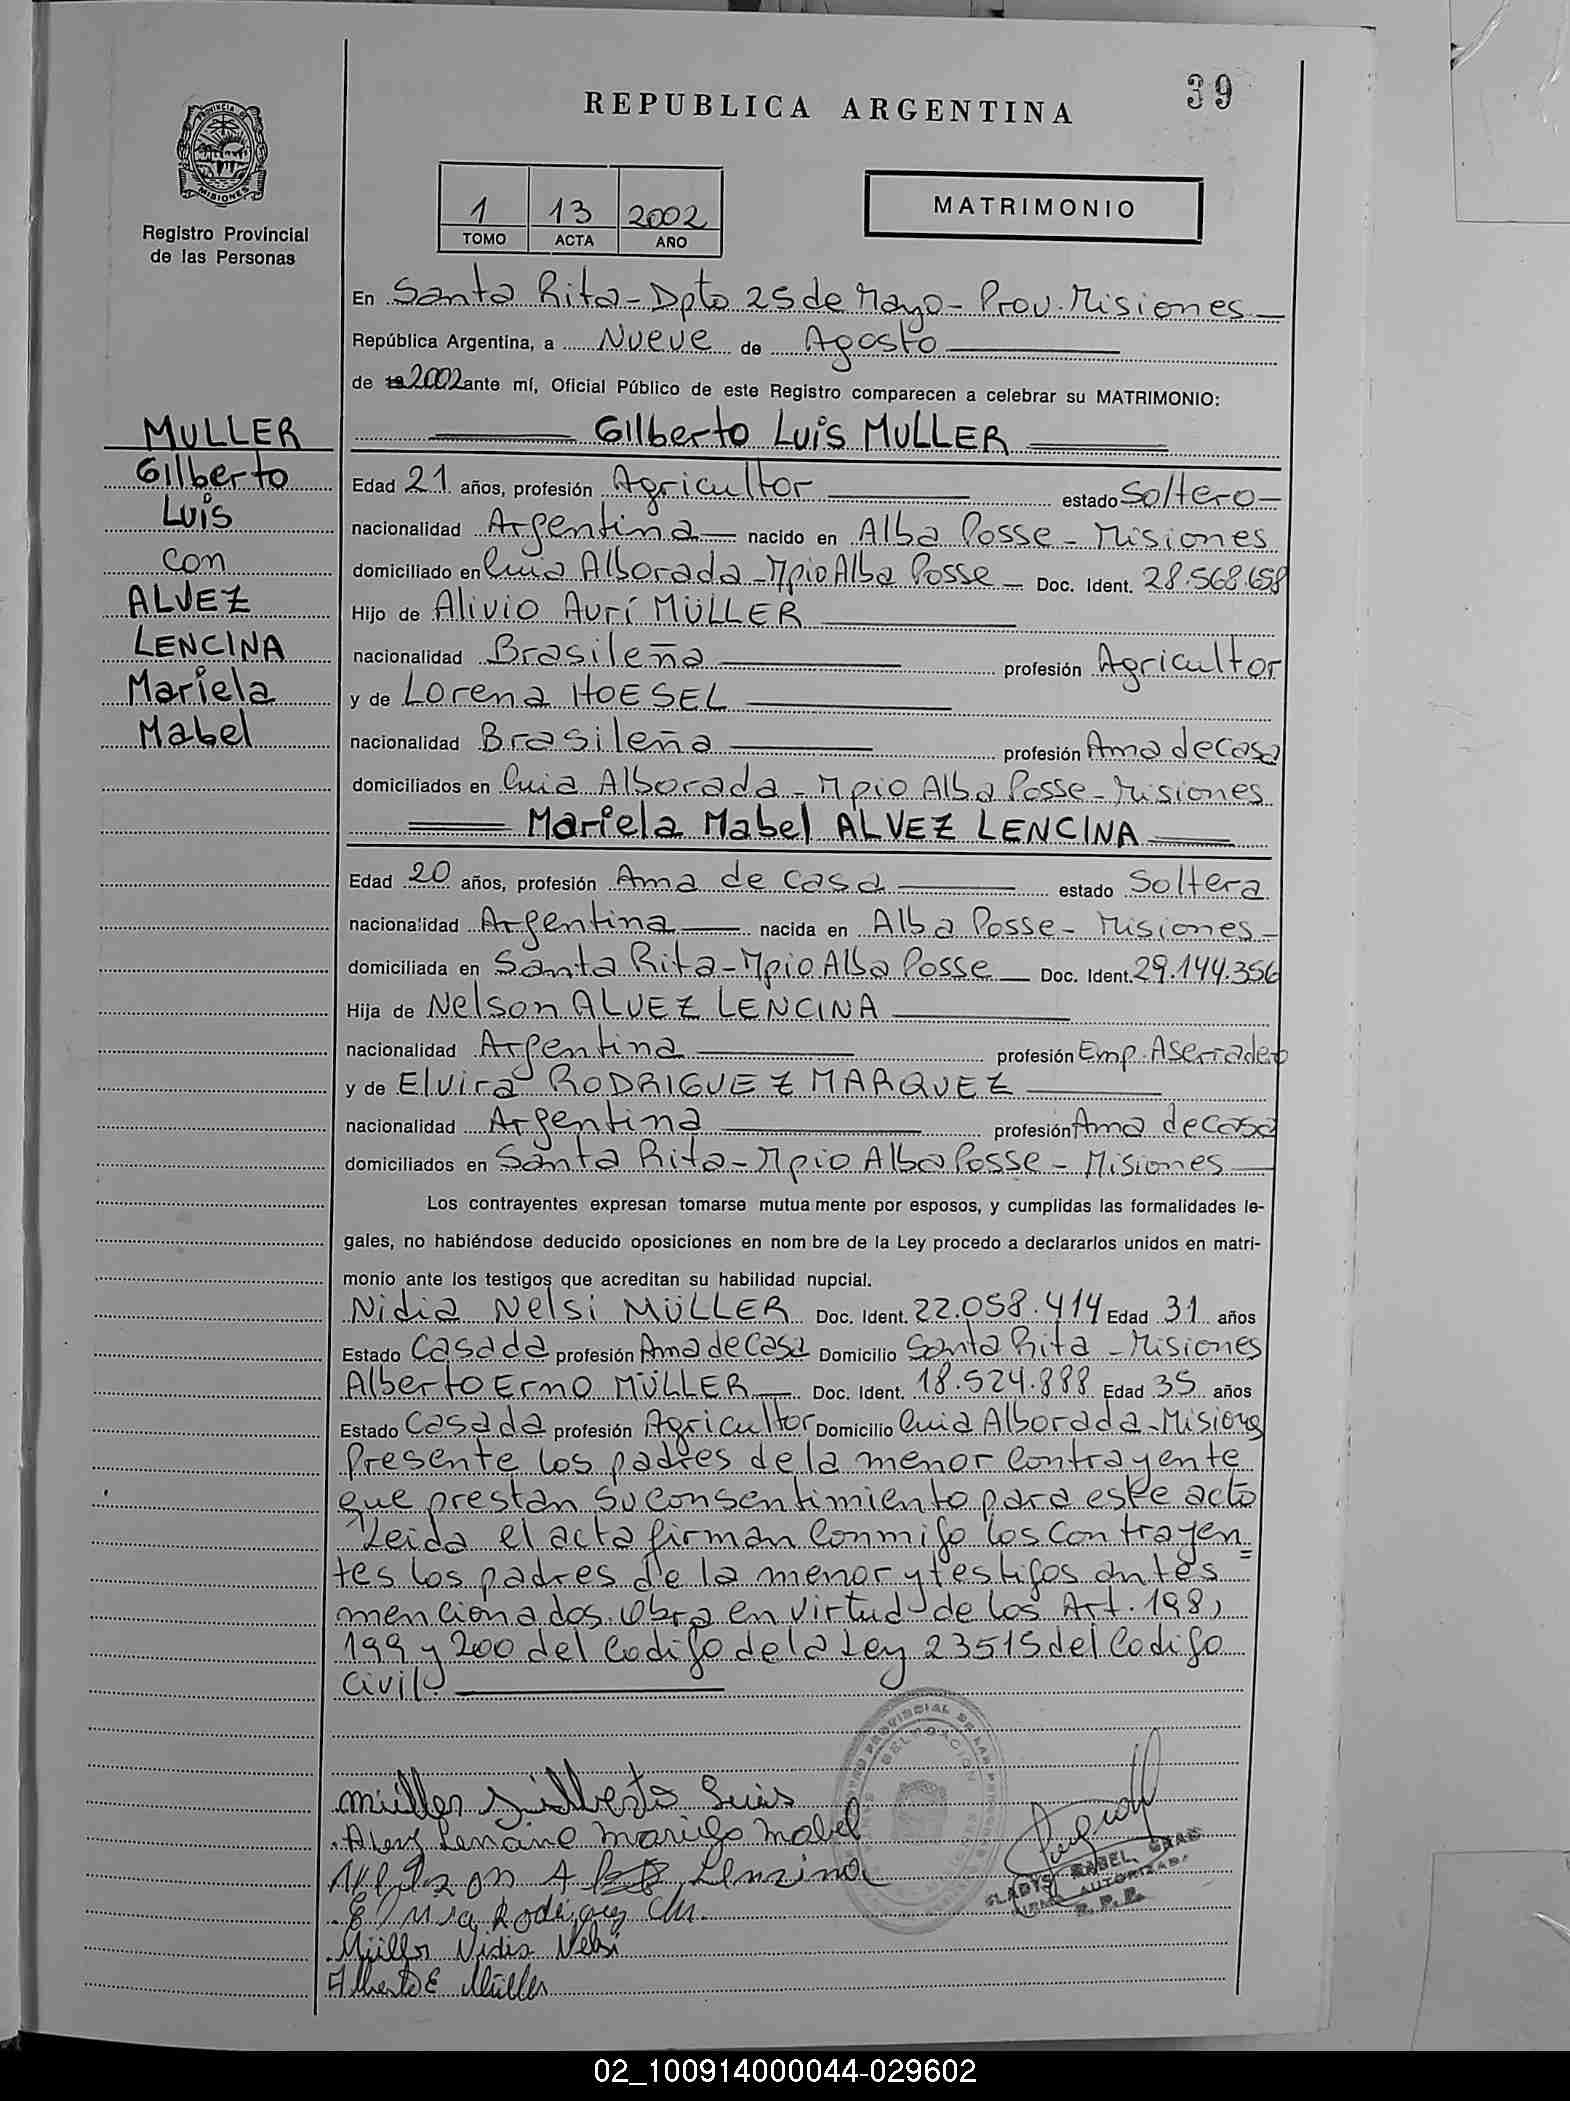 39
REPUBLICA ARGENTINA
PROVINCIA DE
MISIONES
Registro Provincial
de las Personas
1 13 2002
TOMO ACTA AÑO
MATRIMONIO
En Santa Rita - Dpto 25 de Mayo - Prov. Misiones
República Argentina, a Nueve de Agosto
de 19 2002 ante mí, Oficial Público de este Registro comparecen a celebrar su MATRIMONIO:
MULLER
Gilberto
Luis
con
ALVEZ
LENCINA
Mariela
Mabel
Gilberto Luis MULLER
Edad 21 años, profesión Agricultor estado Soltero
nacionalidad Argentina nacido en Alba Posse - Misiones
domiciliado en Cnia Alborada - Mpio Alba Posse - Doc. Ident. 28.568.658
Hijo de Alivio Aurí MÜLLER
nacionalidad Brasileña profesión Agricultor
y de Lorena HOESEL
nacionalidad Brasileña profesión Ama de casa
domiciliados en Cnia Alborada - Mpio Alba Posse - Misiones
Mariela Mabel ALVEZ LENCINA
Edad 20 años, profesión Ama de casa estado Soltera
nacionalidad Argentina nacida en Alba Posse - Misiones
domiciliada en Santa Rita - Mpio Alba Posse - Doc. Ident. 29.144.356
Hija de Nelson ALVEZ LENCINA
nacionalidad Argentina profesión Emp. Aserradero
y de Elvira RODRIGUEZ MARQUEZ
nacionalidad Argentina profesión Ama de casa
domiciliados en Santa Rita - Mpio Alba Posse - Misiones
Los contrayentes expresan tomarse mutua mente por esposos, y cumplidas las formalidades le-
gales, no habiéndose deducido oposiciones en nom bre de la Ley procedo a declararlos unidos en matri-
monio ante los testigos que acreditan su habilidad nupcial.
Nidia Nelsi MÜLLER Doc. Ident. 22.058.414 Edad 31 años
Estado Casada profesión Ama de Casa Domicilio Santa Rita - Misiones
Alberto Erno MÜLLER Doc. Ident. 18.524.888 Edad 35 años
Estado Casada profesión Agricultor Domicilio Cnia Alborada - Misiones
Presente los padres de la menor Contrayente
que prestan su consentimiento para este acto
Leida el acta firman Conmigo los contrayen=
tes los padres de la menor y testigos antes
mencionados. Obra en virtud de los Art. 198,
199 y 200 del Codigo de la Ley 23515 del Codigo
Civil.
Müller Gilberto Luis
Alvez Lencina Mariela Mabel
Nelson Lenzina
Elvira Rodriguez
Müller Nidia Nelsi
Alberto E Müller
GLADYS MABEL
FIRMA AUTORIZADA
R. P. P.
02_100914000044-029602